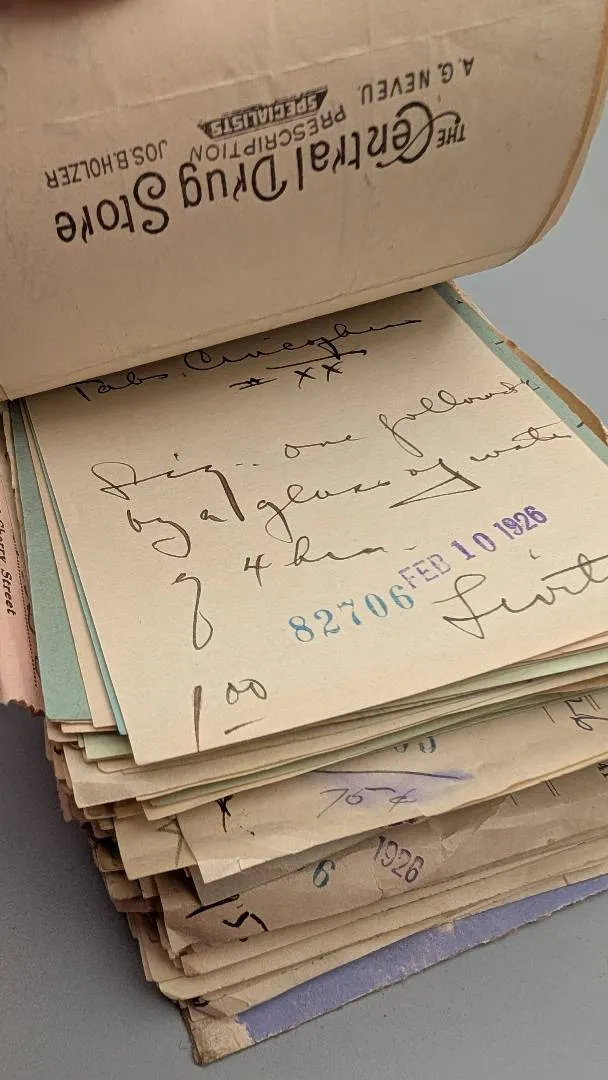 THE Central Drug Store
PRESCRIPTION SPECIALISTS
A.G. NEVEU. JOS.B.HOLZER
Tabs.
# XX
Sig.. one followed
by a glass of water
q 4 hrs.
FEB 10 1926
82706
1 00
75¢
6 1926
Cherry Street